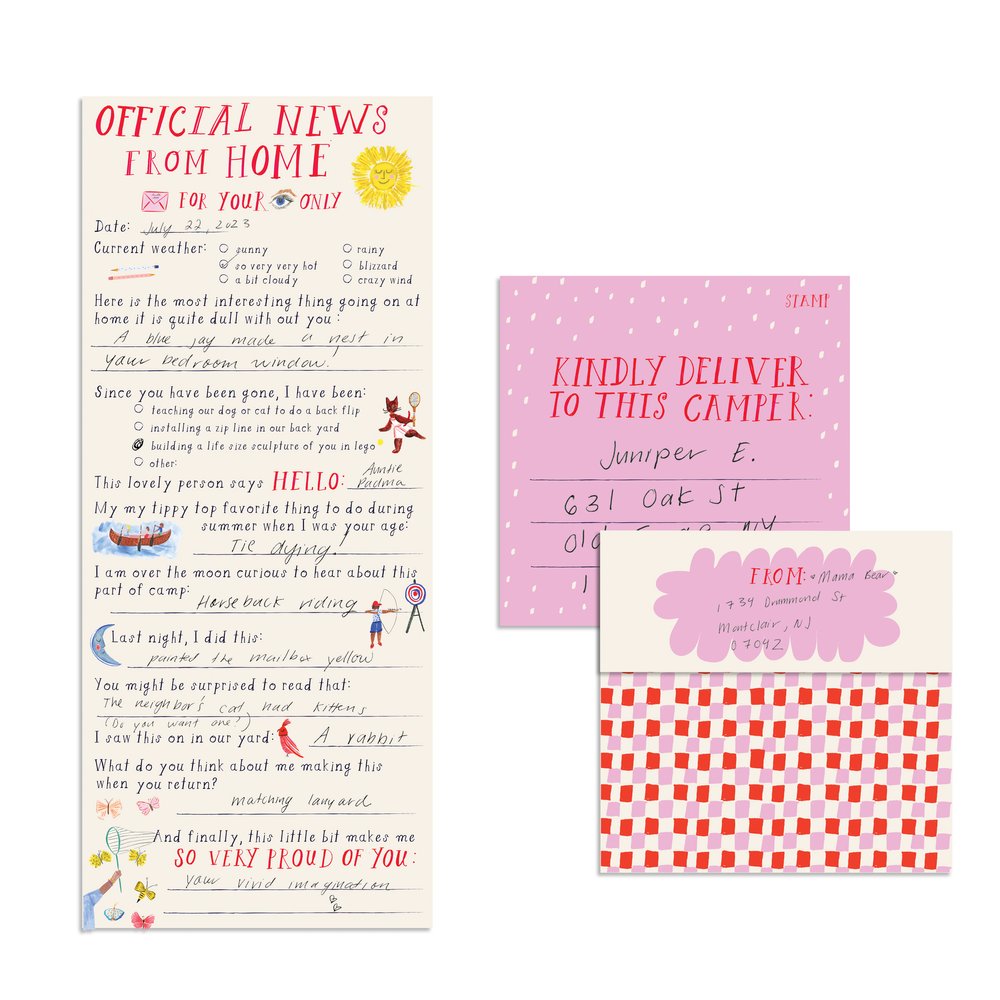 OFFICIAL NEWS
FROM HOME
FOR YOUR ONLY
Date: July 22, 2023
Current weather: sunny rainy
so very very hot blizzard
a bit cloudy crazy wind
Here is the most interesting thing going on at
home it is quite dull with out you:
A blue jay made a nest in
your bedroom window!
Since you have been gone, I have been:
teaching our dog or cat to do a back flip
installing a zip line in our back yard
building a life size sculpture of you in lego
other:
This lovely person says HELLO: Auntie
Padma
My my tippy top favorite thing to do during
summer when I was your age:
Tie dying!
I am over the moon curious to hear about this
part of camp:
Horseback riding
Last night, I did this:
painted the mailbox yellow
You might be surprised to read that:
The neighbor's cat had kittens
(Do you want one?)
I saw this on in our yard: A rabbit
What do you think about me making this
when you return?
matching lanyard
And finally, this little bit makes me
SO VERY PROUD OF YOU:
your vivid imagination
STAMP
KINDLY DELIVER
TO THIS CAMPER:
Juniper E.
631 Oak St
FROM: Mama Bear
1734 Drummond St
Montclair, NJ
07042